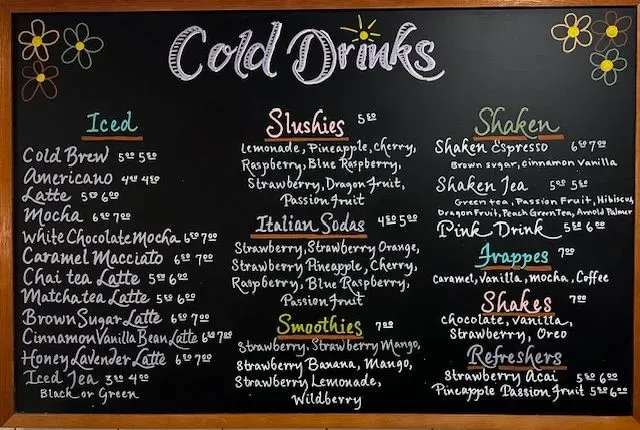 Cold Drinks
Iced
Cold Brew 5⁰⁰ 5⁵⁰
Americano 4⁰⁰ 4⁵⁰
Latte 5⁵⁰ 6⁰⁰
Mocha 6⁰⁰ 7⁰⁰
White Chocolate Mocha 6⁵⁰ 7⁰⁰
Caramel Macciato 6⁵⁰ 7⁰⁰
Chai tea Latte 5⁵⁰ 6⁰⁰
Matcha tea Latte 5⁵⁰ 6⁰⁰
Brown Sugar Latte 6⁵⁰ 7⁰⁰
Cinnamon Vanilla Bean Latte 6⁵⁰ 7⁰⁰
Honey Lavender Latte 6⁵⁰ 7⁰⁰
Iced Tea 3⁵⁰ 4⁰⁰
Black or Green
Slushies 5⁵⁰
Lemonade, Pineapple, Cherry,
Raspberry, Blue Raspberry,
Strawberry, Dragon fruit,
Passion fruit
Italian Sodas 4⁵⁰ 5⁰⁰
Strawberry, Strawberry Orange,
Strawberry Pineapple, Cherry,
Raspberry, Blue Raspberry,
Passion fruit
Smoothies 7⁰⁰
Strawberry, Strawberry Mango,
Strawberry Banana, Mango,
Strawberry Lemonade,
Wildberry
Shaken
Shaken Espresso 6⁵⁰ 7⁰⁰
Brown sugar, cinnamon vanilla
Shaken Tea 5⁰⁰ 5⁵⁰
Green tea, Passion Fruit, Hibiscus,
Dragon Fruit, Peach Green Tea, Arnold Palmer
Pink Drink 5⁵⁰ 6⁰⁰
Frappes 7⁰⁰
caramel, vanilla, mocha, Coffee
Shakes 7⁰⁰
chocolate, vanilla,
Strawberry, Oreo
Refreshers
Strawberry Acai 5⁵⁰ 6⁰⁰
Pineapple Passion fruit 5⁵⁰ 6⁰⁰